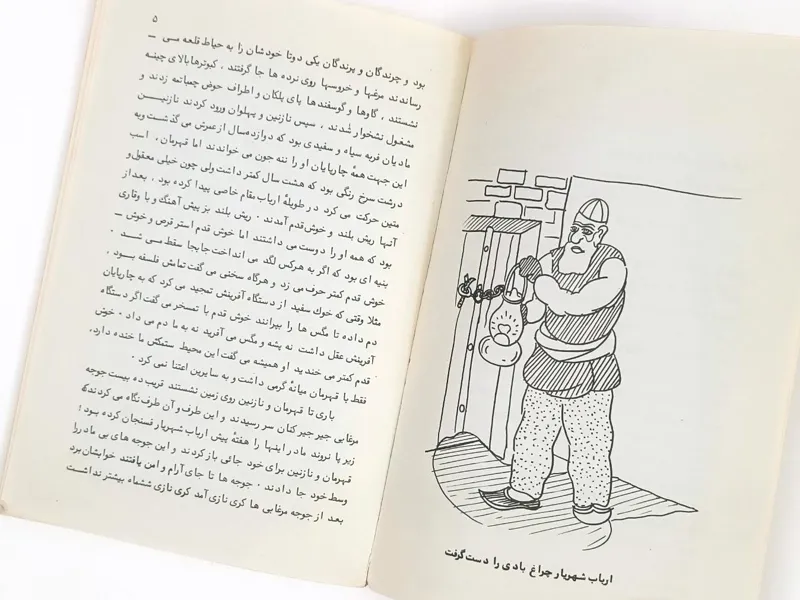 ۵
بود و چرندگان و پرندگان یکی دوتا خودشان را به حیاط قلعه می ــ
رساندند مرغها و خروسها روی نرده ها جا گرفتند ، کبوترها بالای چینه
نشستند ، گاوها و گوسفندها پای پلکان و اطراف حوض چمباتمه زدند و
مشغول نشخوار شدند ، سپس نازنین و پهلوان ورود کردند نازنیــن
مادیان فربه سیاه و سفیدی بود که دوازده سال از عمرش می گذشت وبه
این جهت همهٔ چارپایان او را ننه جون می خواندند اما قهرمان ، اسب
درشت سرخ رنگی بود که هشت سال کمتر داشت ولی چون خیلی معقول و
متین حرکت می کرد در طویلهٔ ارباب مقام خاصی پیدا کرده بود . بعد از
آنها ریش بلند و خوش قدم آمدند . ریش بلند بز پیش آهنگ و با وقاری
بود که همه او را دوست می داشتند اما خوش قدم استر قرص و خوش ــ
بنیه ای بود که اگر به هرکس لگد می انداخت جابجا سقط مــی شــد .
خوش قدم کمتر حرف می زد و هرگاه سخنی می گفت تمامش فلسفه بــود .
مثلا وقتی که خوك سفید از دستگاه آفرینش تمجید می کرد که به چارپایان
دم داده تا مگس ها را بپرانند خوش قدم با تمسخر می گفت اگر دستگاه
آفرینش عقل داشت نه پشه و مگس می آفرید نه به ما دم می داد . خوش
قدم کمتر می خندید او همیشه می گفت این محیط ستمکش ما خنده دارد.
فقط با قهرمان میانهٔ گرمی داشت و به سایرین اعتنا نمی کرد .
باری تا قهرمان و نازنین روی زمین نشستند قریب ده بیست جوجه
مرغابی جیر جیر کنان سر رسیدند و این طرف و آن طرف نگاه می کردندکه
زیر پا نروند مادر اینها را هفتهٔ پیش ارباب شهریار فسنجان کرده بــود ؛
قهرمان و نازنین برای خود جائی باز کردند و این جوجه های بی مادر را
وسط خود جا دادند . جوجه ها تا جای آرام و امن یافتند خوابشان برد
بعد از جوجه مرغابی ها کری نازی آمد کری نازی ششماه بیشتر نداشت
ارباب شهریار چراغ بادی را دست گرفت